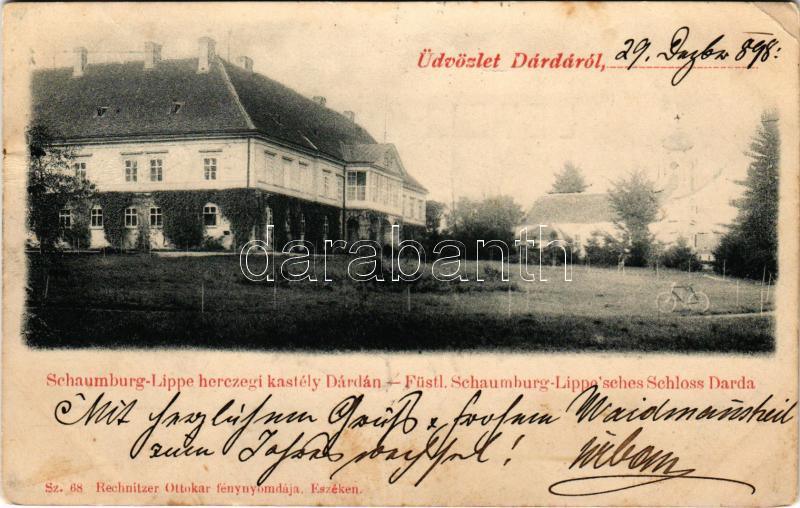 Üdvözlet Dárdáról, 29. Dezbr 898.
darabanth.com
Schaumburg-Lippe herczegi kastély Dárdán — Füstl. Schaumburg-Lippe'sches Schloss Darda
Mit herzlichem Gruß & frohem Waidmannsheil
zum Jahreswechsel! Urban
Sz. 68 Rechnitzer Ottokar fénynyomdája, Eszéken.